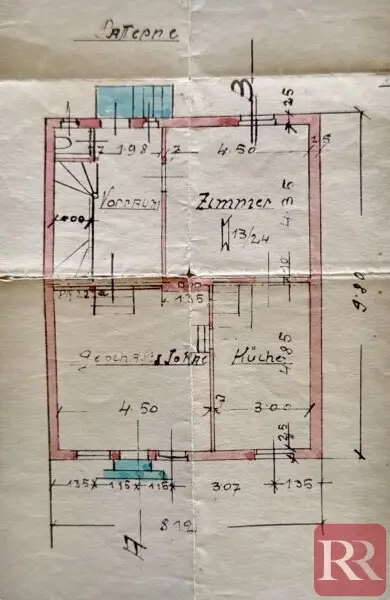 Parterre
B
25
7
198
7
4.50
25
Vorraum
Zimmer
100
4.35
13/24
9.80
135
Geschäftslokal
Küche
4.85
4.50
7
3.00
25
135
115
115
307
135
A
8.12
RR